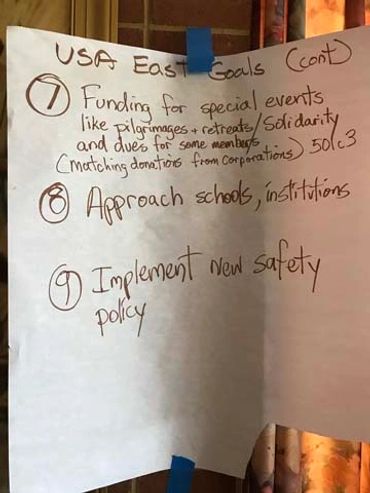 USA East Goals (cont)
7 Funding for special events
like pilgrimages + retreats/Solidarity
and dues for some members
(Matching donations from corporations) 501c3
8 Approach schools, institutions
9 Implement new safety
policy